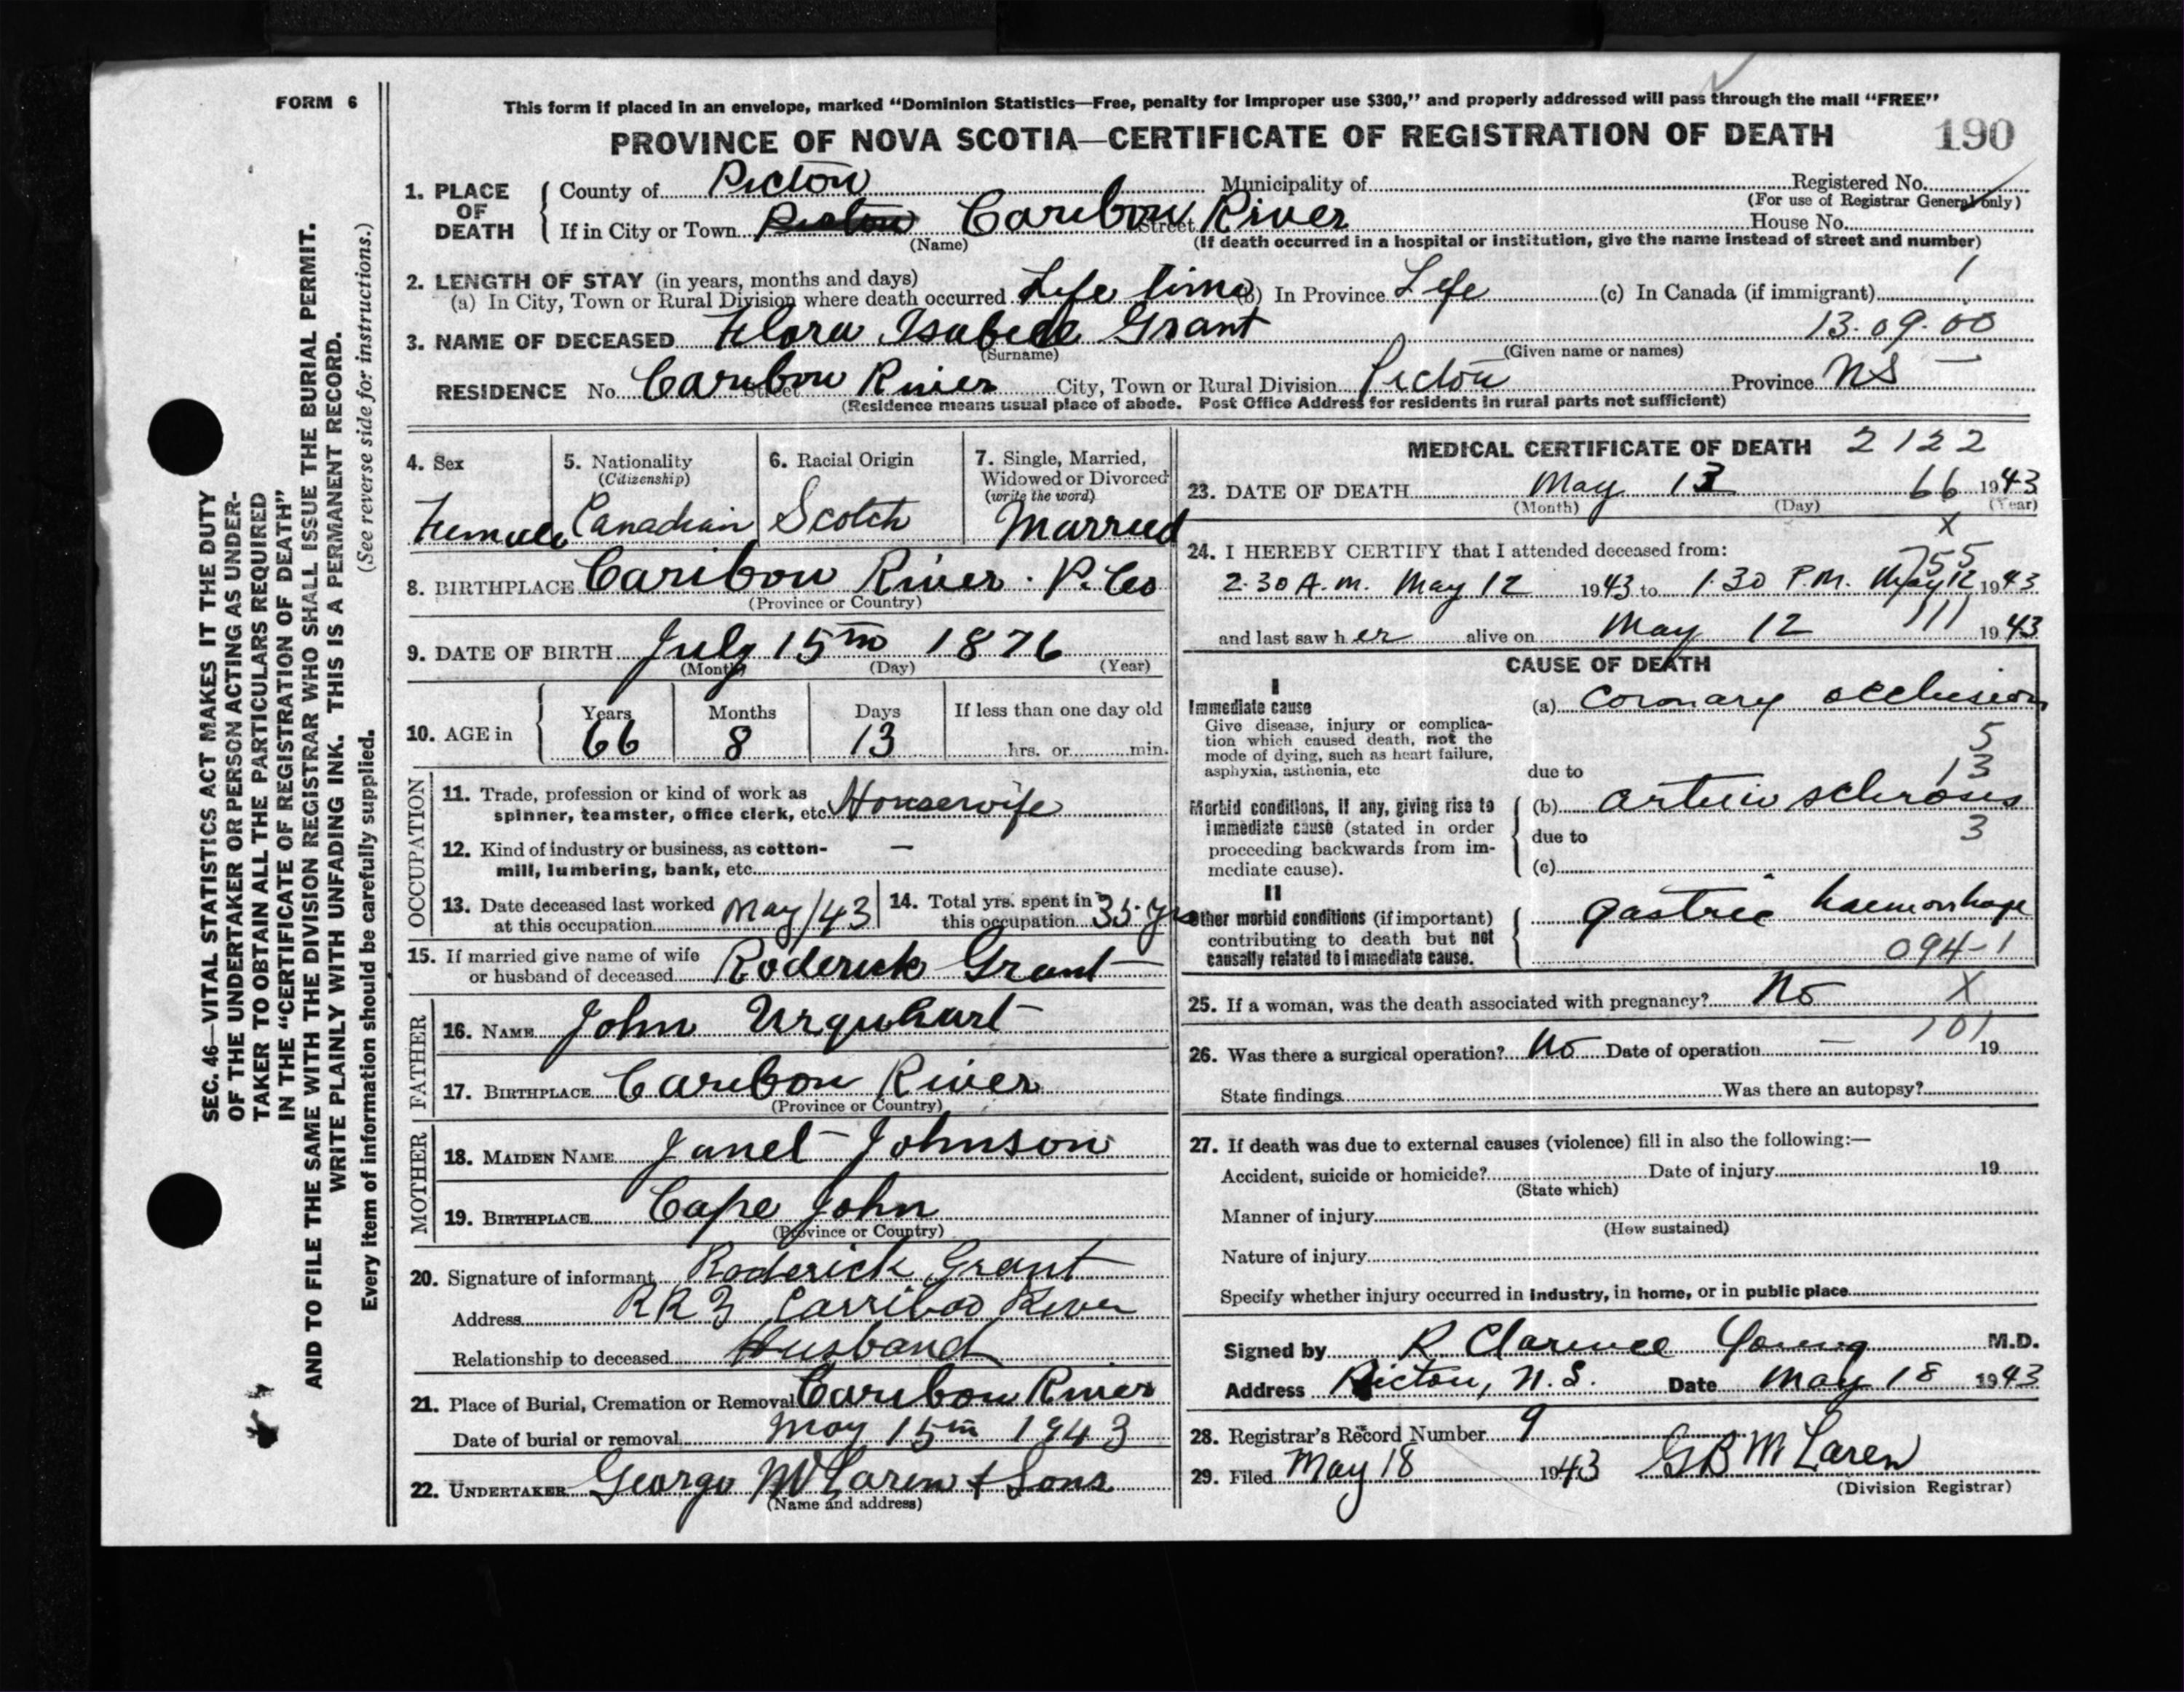 FORM 6
This form if placed in an envelope, marked "Dominion Statistics—Free, penalty for improper use $300," and properly addressed will pass through the mail "FREE"
PROVINCE OF NOVA SCOTIA—CERTIFICATE OF REGISTRATION OF DEATH 190
1. PLACE OF DEATH
County of Pictou Municipality of Registered No.
(For use of Registrar General only)
If in City or Town Pictou Caribou River Street House No.
(Name) (If death occurred in a hospital or institution, give the name instead of street and number)
2. LENGTH OF STAY (in years, months and days) 1
(a) In City, Town or Rural Division where death occurred Life time (b) In Province Life (c) In Canada (if immigrant)
3. NAME OF DECEASED Flora Isabell Grant 13.09.00
(Surname) (Given name or names)
RESIDENCE No. Caribou River Street City, Town or Rural Division Pictou Province NS
(Residence means usual place of abode. Post Office Address for residents in rural parts not sufficient)
4. Sex
Female
5. Nationality
(Citizenship)
Canadian
6. Racial Origin
Scotch
7. Single, Married,
Widowed or Divorced
(write the word)
Married
8. BIRTHPLACE Caribou River. P. Co
(Province or Country)
9. DATE OF BIRTH July 15th 1876
(Month) (Day) (Year)
10. AGE in
Years Months Days If less than one day old
66 8 13 hrs. or min.
OCCUPATION
11. Trade, profession or kind of work as
spinner, teamster, office clerk, etc. Housewife
12. Kind of industry or business, as cotton-
mill, lumbering, bank, etc. —
13. Date deceased last worked
at this occupation May/43
14. Total yrs. spent in
this occupation 35 yrs
15. If married give name of wife
or husband of deceased Roderick Grant
FATHER
16. NAME John Urquhart
17. BIRTHPLACE Caribou River
(Province or Country)
MOTHER
18. MAIDEN NAME Janet Johnson
19. BIRTHPLACE Cape John
(Province or Country)
20. Signature of informant Roderick Grant
Address RR3 Carriboo River
Relationship to deceased Husband
21. Place of Burial, Cremation or Removal Caribou River
Date of burial or removal May 15th 1943
22. UNDERTAKER George McLaren & Sons
(Name and address)
MEDICAL CERTIFICATE OF DEATH 2122
23. DATE OF DEATH May 13 66 1943
(Month) (Day) (Year)
X
24. I HEREBY CERTIFY that I attended deceased from:
755
2.30 A.M. May 12 1943 to 1.30 P.M. May 12 1943
111
and last saw her alive on May 12 1943
CAUSE OF DEATH
I
Immediate cause
Give disease, injury or complica-
tion which caused death, not the
mode of dying, such as heart failure,
asphyxia, asthenia, etc
(a) Coronary occlusion
5
13
due to
Morbid conditions, if any, giving rise to
immediate cause (stated in order
proceeding backwards from im-
mediate cause).
(b) arterio sclerosis
due to 3
(c)
II
Other morbid conditions (if important)
contributing to death but not
causally related to immediate cause.
gastric haemorrhage
094-1
25. If a woman, was the death associated with pregnancy? No X
101
26. Was there a surgical operation? No Date of operation — 19
State findings Was there an autopsy?
27. If death was due to external causes (violence) fill in also the following:—
Accident, suicide or homicide? Date of injury 19
(State which)
Manner of injury
(How sustained)
Nature of injury
Specify whether injury occurred in industry, in home, or in public place
Signed by R Clarence Young M.D.
Address Pictou, N.S. Date May 18 1943
28. Registrar's Record Number 9
29. Filed May 18 1943 GB McLaren
(Division Registrar)
SEC. 46—VITAL STATISTICS ACT MAKES IT THE DUTY
OF THE UNDERTAKER OR PERSON ACTING AS UNDER-
TAKER TO OBTAIN ALL THE PARTICULARS REQUIRED
IN THE "CERTIFICATE OF REGISTRATION OF DEATH"
AND TO FILE THE SAME WITH THE DIVISION REGISTRAR WHO SHALL ISSUE THE BURIAL PERMIT.
WRITE PLAINLY WITH UNFADING INK. THIS IS A PERMANENT RECORD.
Every item of information should be carefully supplied. (See reverse side for instructions.)